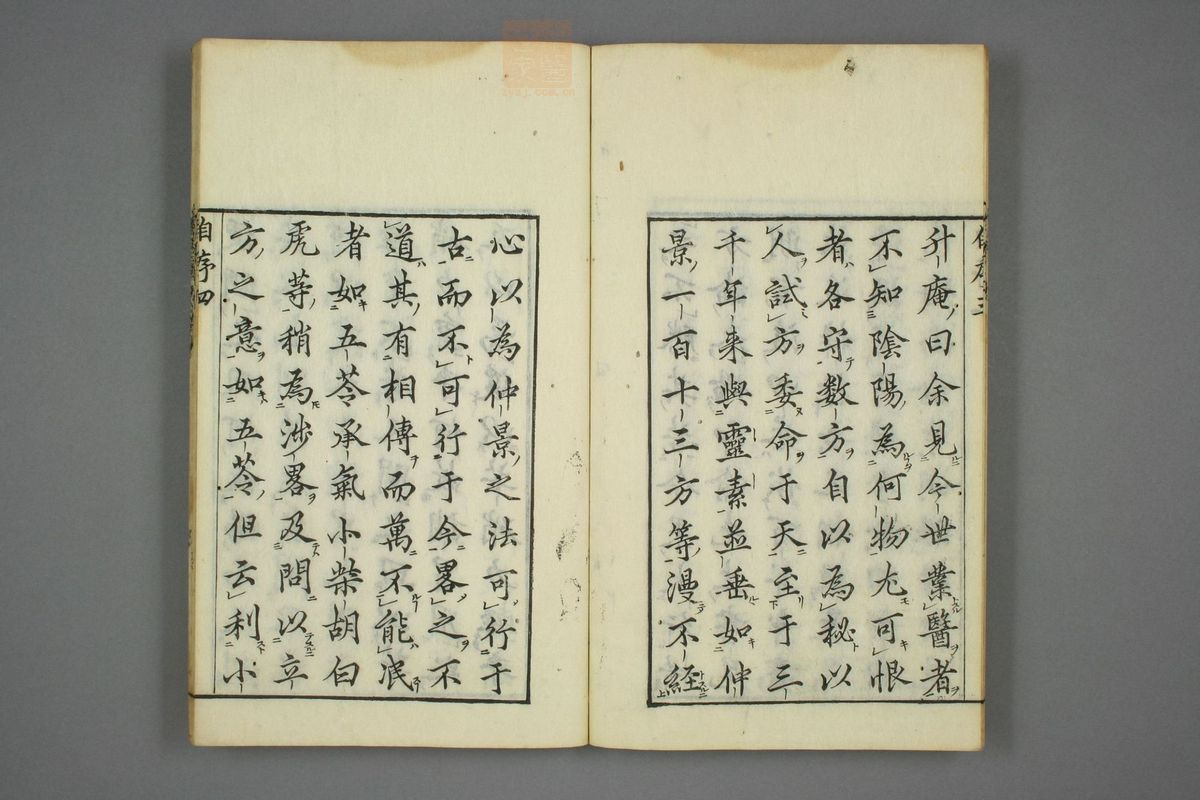 升庵曰余見今世業醫者
不知陰陽為何物尤可恨
者各守数方自以為秘以
人試方委命于天至于三
千年来與靈素並垂如仲
景一百十三方等漫不経
心以為仲景之法可行于
古而不可行于今畧之不
道其有相傳而萬不能泯
者如五苓承氣小柴胡白
虎等稍為涉畧及問以立
方之意如五苓但云利小
自序四